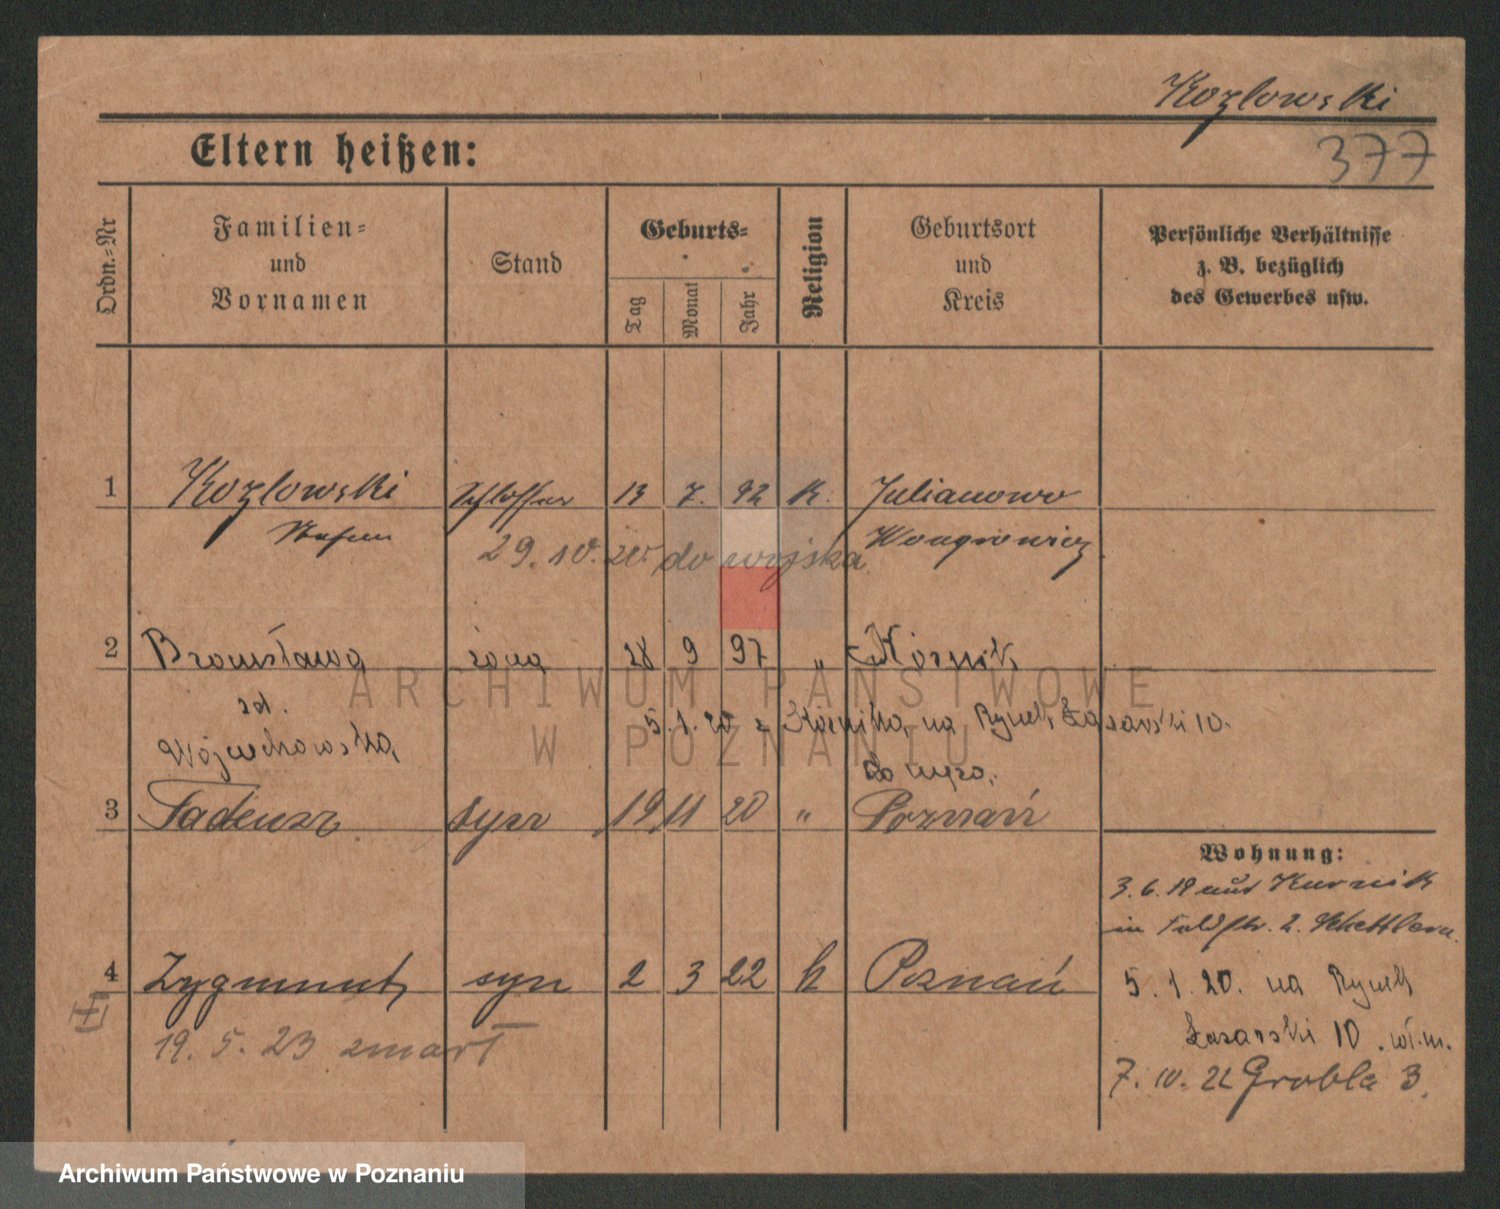 Kozlowski
377
Eltern heißen:
Ordn.-Nr
Familien-
und
Vornamen
Stand
Geburts-
Tag
Monat
Jahr
Religion
Geburtsort
und
Kreis
Persönliche Verhältnisse
z. B. bezüglich
des Gewerbes usw.
1 Kozlowski Schlosser 13 7. 92 K. Julianowo
Stefan Wongrowiez
29. 10. 20. do wojska
2 Bronisława żona 28 9 97 " Kórnik
zd. 5. 1. 20 z Kórnika, na Rynek Łazarski 10.
Wojciechowska,
do męża.
3 Tadeusz syn 19 11 20 " Poznań
Wohnung:
3. 6. 19 aus Kurnik
in Feldstr. 2.
4 Zygmunt syn 2 3 22 k Poznań
5. 1. 20. na Rynek
Łazarski 10. wł. m.
19. 5. 23 zmarł
7. 10. 21 Grobla 3.
ARCHIWUM PAŃSTWOWE
W POZNANIU
Archiwum Państwowe w Poznaniu